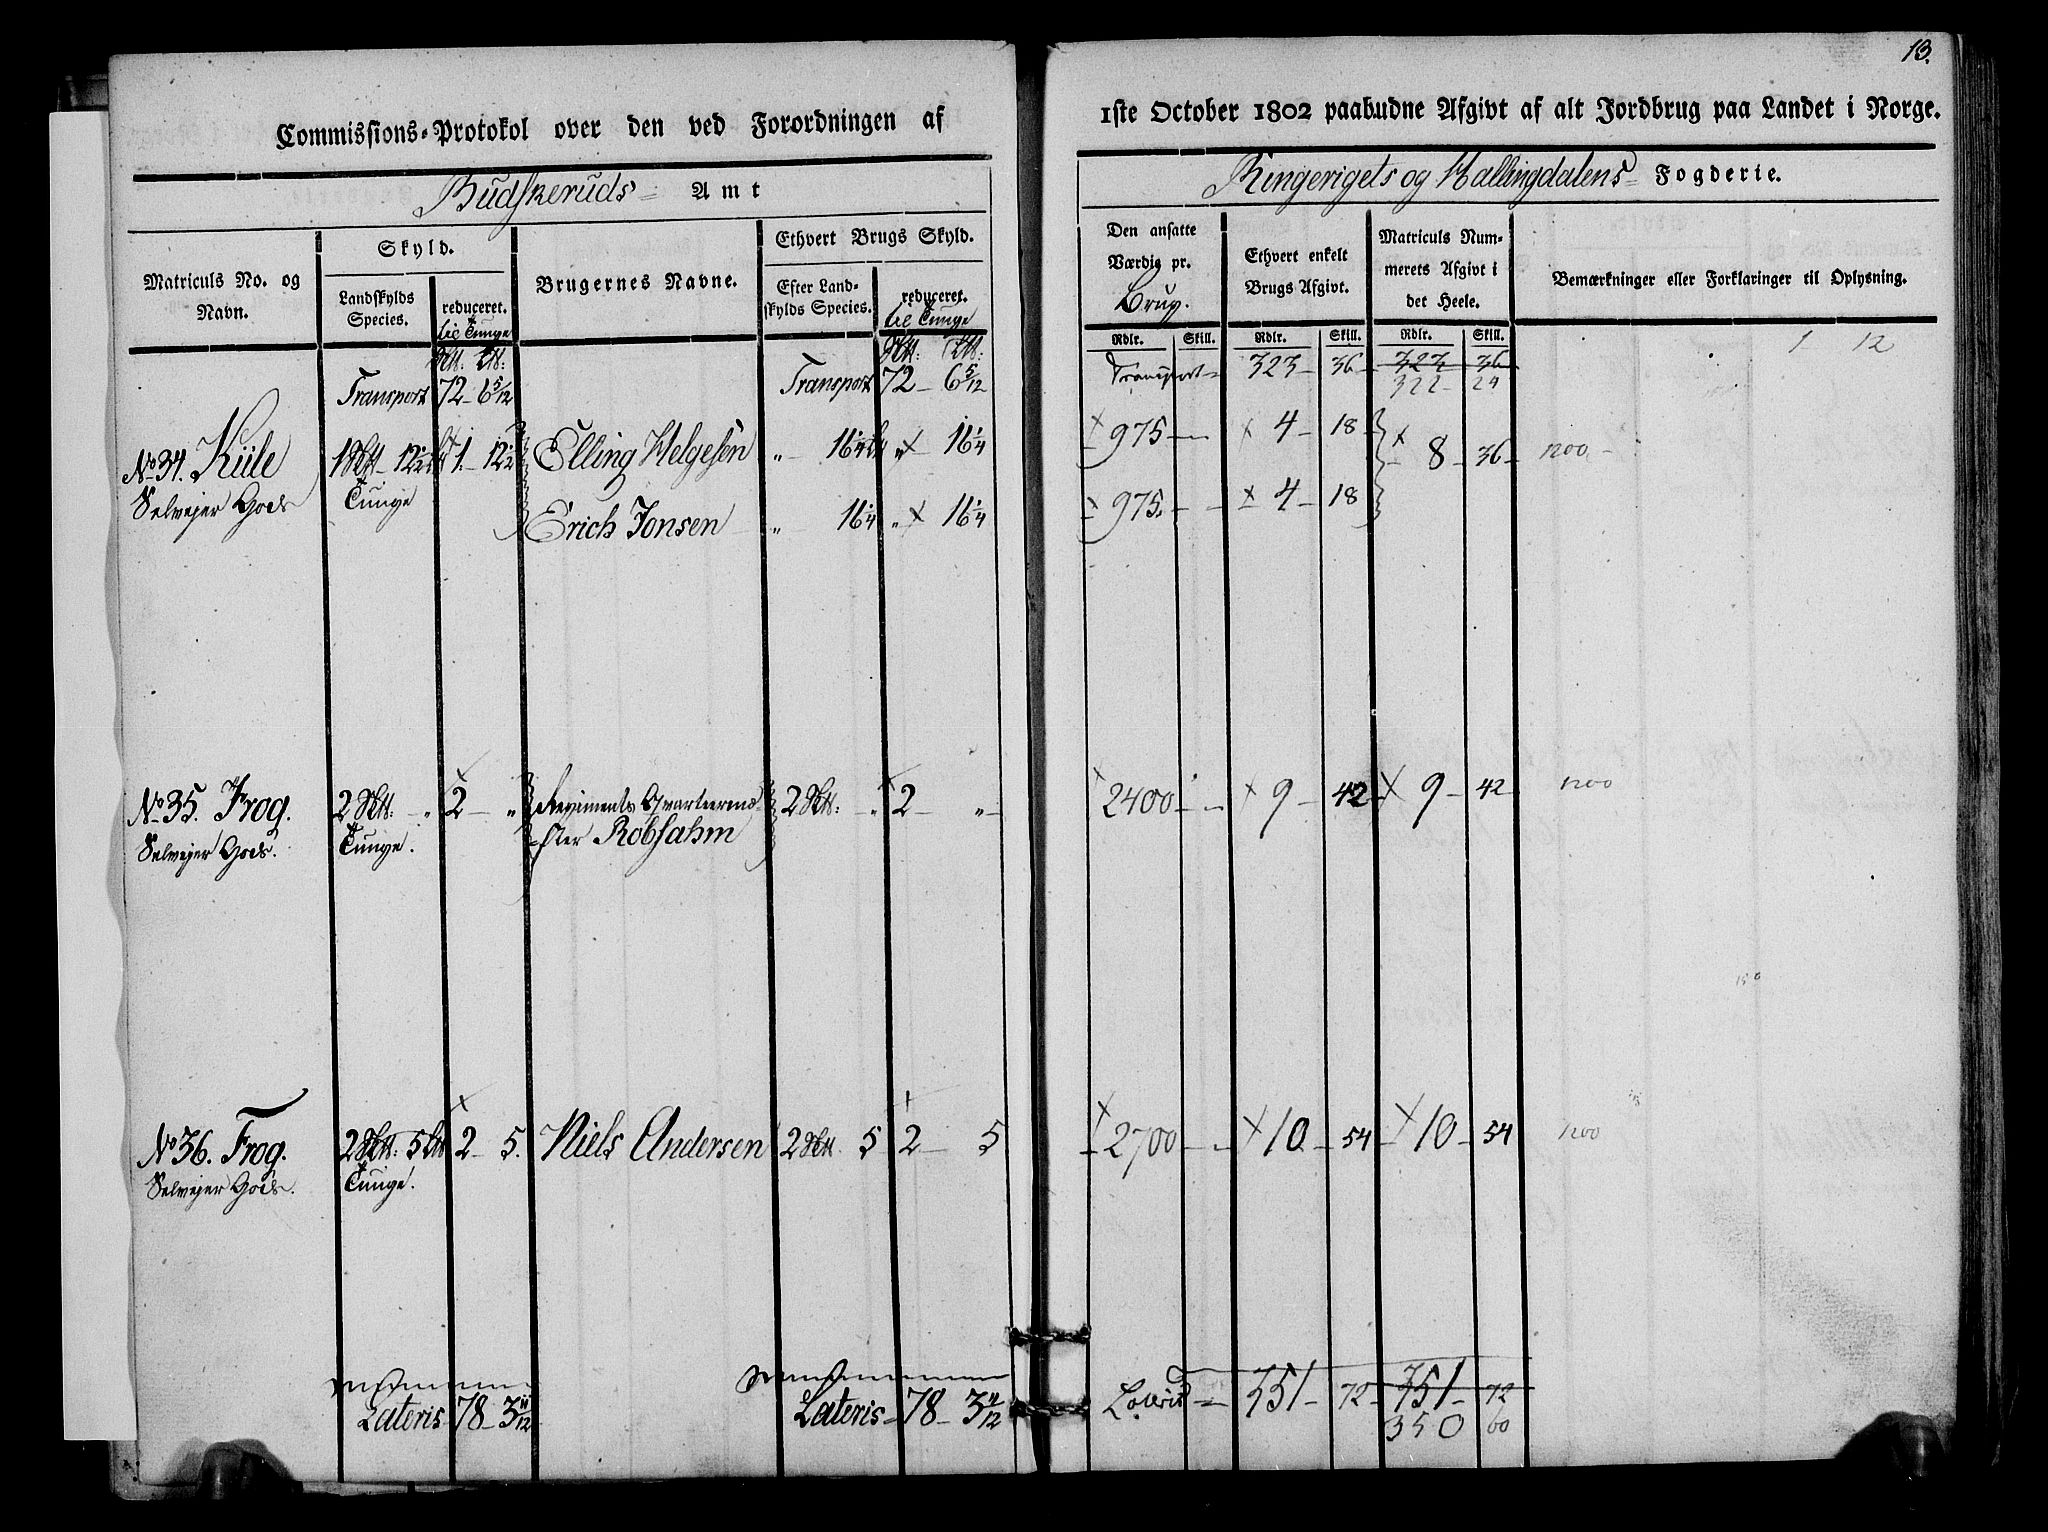 13.
Commissions-Protokol over den ved Forordningen af
1ste October 1802 paabudne Afgivt af alt Jordbrug paa Landet i Norge.
Budskeruds Amt
Ringerigets og Hallingdalens Fogderie.
Matriculs No. og Navn.
Skyld.
Landskylds Species.
reduceret. til Tunge
Brugernes Navne.
Ethvert Brugs Skyld.
Efter Landskylds Species.
reduceret. til Tunge
Den ansatte Værdie pr. Brug.
Ethvert enkelt Brugs Afgivt.
Matriculs Nummerets Afgivt i det Heele.
Bemærkninger eller Forklaringer til Oplysning.
Rdlr. Skill. Rdlr. Skill. Rdlr. Skill.
1 12
Transport 72 - 6 5/12 Transport 72 - 6 5/12 Transport 323 - 36 - 323 - 36
322 - 24
No 34. Kiile 1 12 1/2 1. - 12 1/2 Elling Helgesen " - 16 1/4 " 16 1/4 975 - 4 - 18 8 - 36 1200
Selvejer Gods Tunge Erich Jonsen " 16 1/4 " 16 1/4 975. - 4 - 18
No 35. Frog. 2 - " 2 - " Regiments Qvarteerme- 2 - " 2 " 2400 - 9 - 42 9 - 42 1200
Selvejer Gods. Tunge. ster Robsahm
150
No 36. Frog. 2 5 2 - 5. Niels Andersen 2 5 2 - 5 2700 - 10 - 54 10 - 54 1200
Selvejer Gods. Tunge.
Lateris 78 - 3 11/12 Lateris 78 - 3 11/12 Lateris 351 - 72 - 351 - 72
350 60